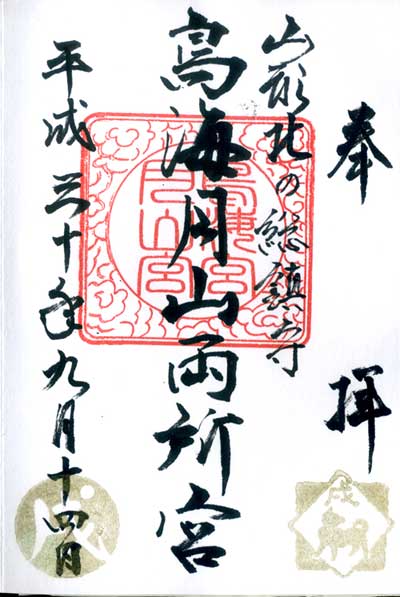 奉拝
山形北の総鎮守
鳥海月山両所宮
平成三十年九月十四日
戌
戌